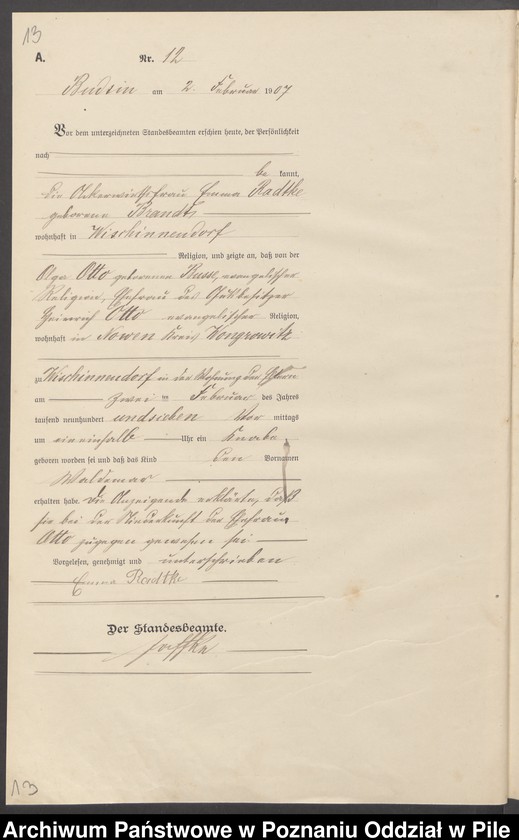 13
A. Nr. 12
Budsin am 2. Februar 1907
Vor dem unterzeichneten Standesbeamten erschien heute, der Persönlichkeit
nach
be kannt,
die Ackerwirthsfrau Emma Radtke
geborene Brandt
wohnhaft in Wischinnendorf
Religion, und zeigte an, daß von der
Olga Otto geborenen evangelischer
Religion, Ehefrau des
Heinrich Otto evangelischer Religion,
wohnhaft in Nowen Kreis Wongrowitz
zu Wischinnendorf in der Wohnung der Eltern
am zwei ten Februar des Jahres
tausend neunhundert undsieben Vor mittags
um eineinhalb Uhr ein Knabe
geboren worden sei und daß das Kind den Vornamen
Waldemar
erhalten habe. Die Anzeigende erklärte, daß
sie bei der Niederkunft der Ehefrau
Otto zugegen gewesen sei
Vorgelesen, genehmigt und unterschrieben
Emma Radtke
Der Standesbeamte.
13
Archiwum Państwowe w Poznaniu Oddział w Pile